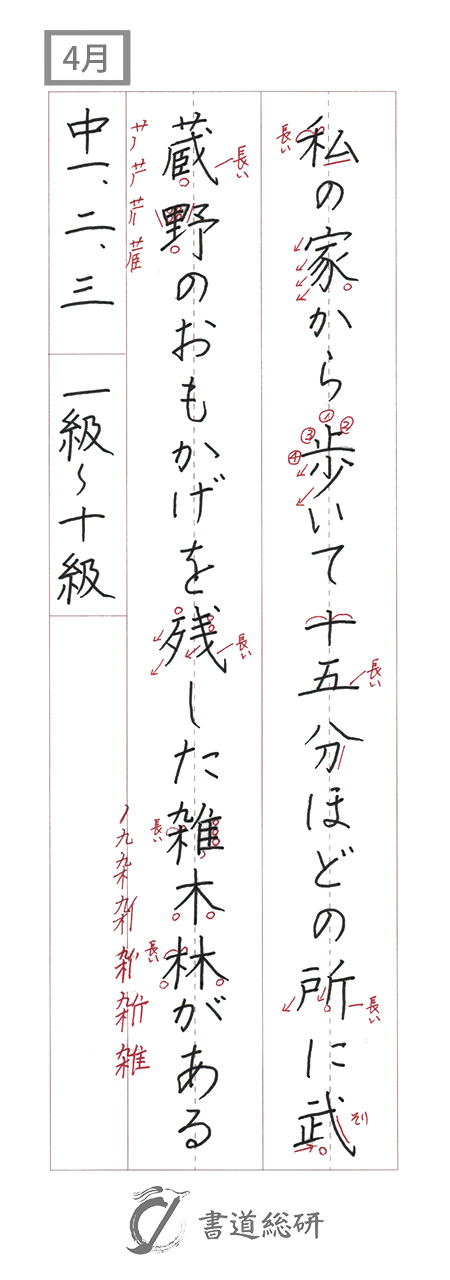 4月
私の家から歩いて十五分ほどの所に武
蔵野のおもかげを残した雑木林がある
中一、二、三 一級〜十級
長い
①
②
③
④
長い
長い
そり
長い
長い
長い
長い
書道総研